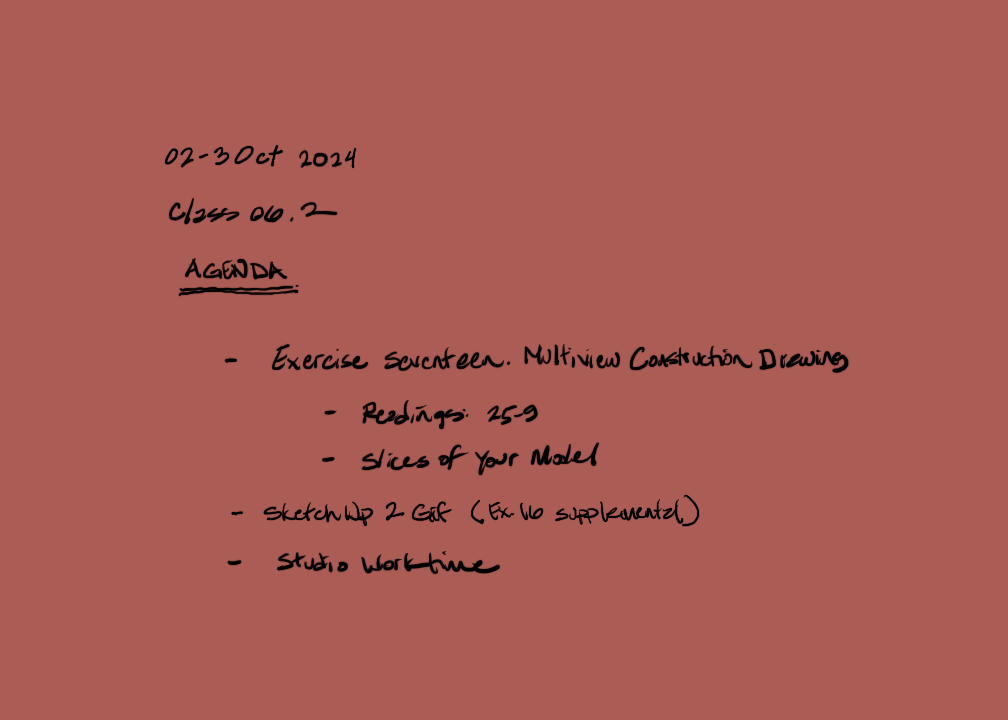 02-3 Oct 2024
Class 06.2
AGENDA
- Exercise Seventeen. Multiview Construction Drawing
- Readings: 25-9
- Slices of Your Model
- SketchUp 2 Gif (Ex. 16 supplemental)
- Studio Worktime